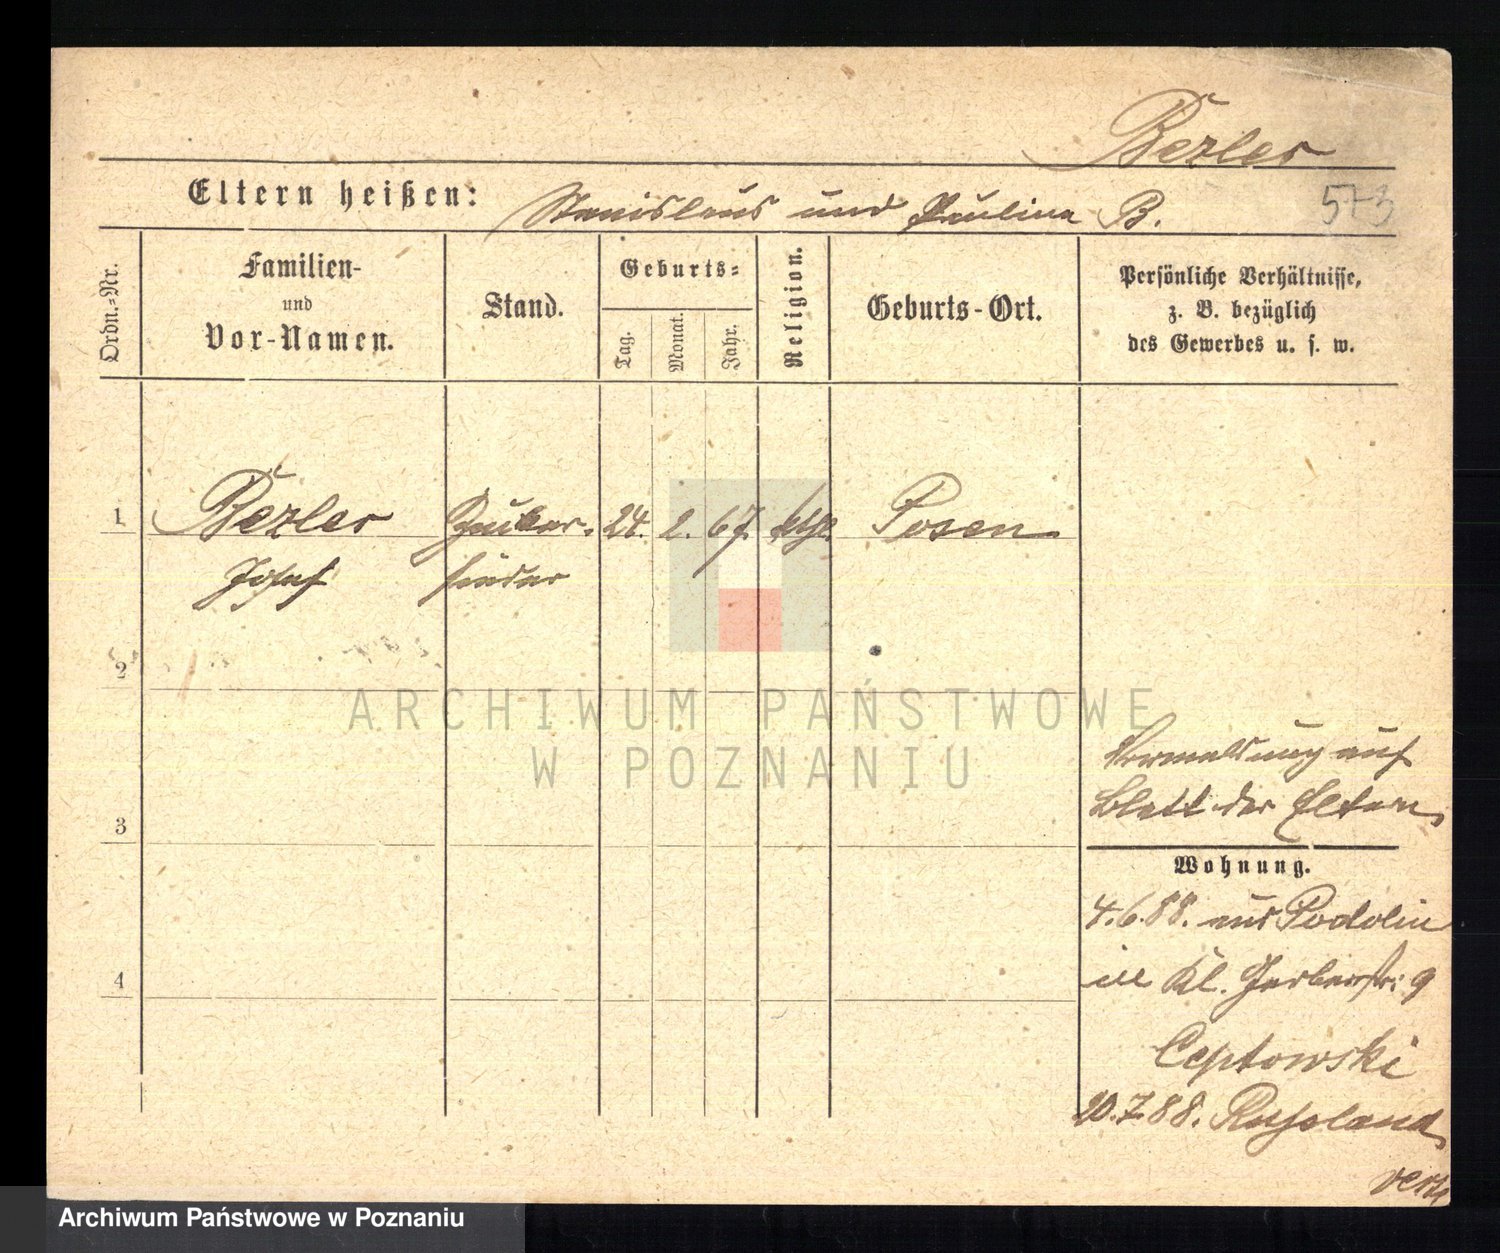 Bezler
Eltern heißen: Stanislaus und Paulina B.
573
Ordn.-Nr.
Familien-
und
Vor-Namen.
Stand.
Geburts-
Tag.
Monat.
Jahr.
Religion.
Geburts-Ort.
Persönliche Verhältnisse,
z. B. bezüglich
des Gewerbes u. s. w.
1 Bezler 24. 2. 67. kth. Posen
Josef sieder
2
3
4
ARCHIWUM PAŃSTWOWE
W POZNANIU
Vermeldung auf
Blatt der Eltern
Wohnung.
4.6.88. aus Podolin
in Kl. Gerberstr: 9
Ceptowski
20.7.88. Russland
Archiwum Państwowe w Poznaniu